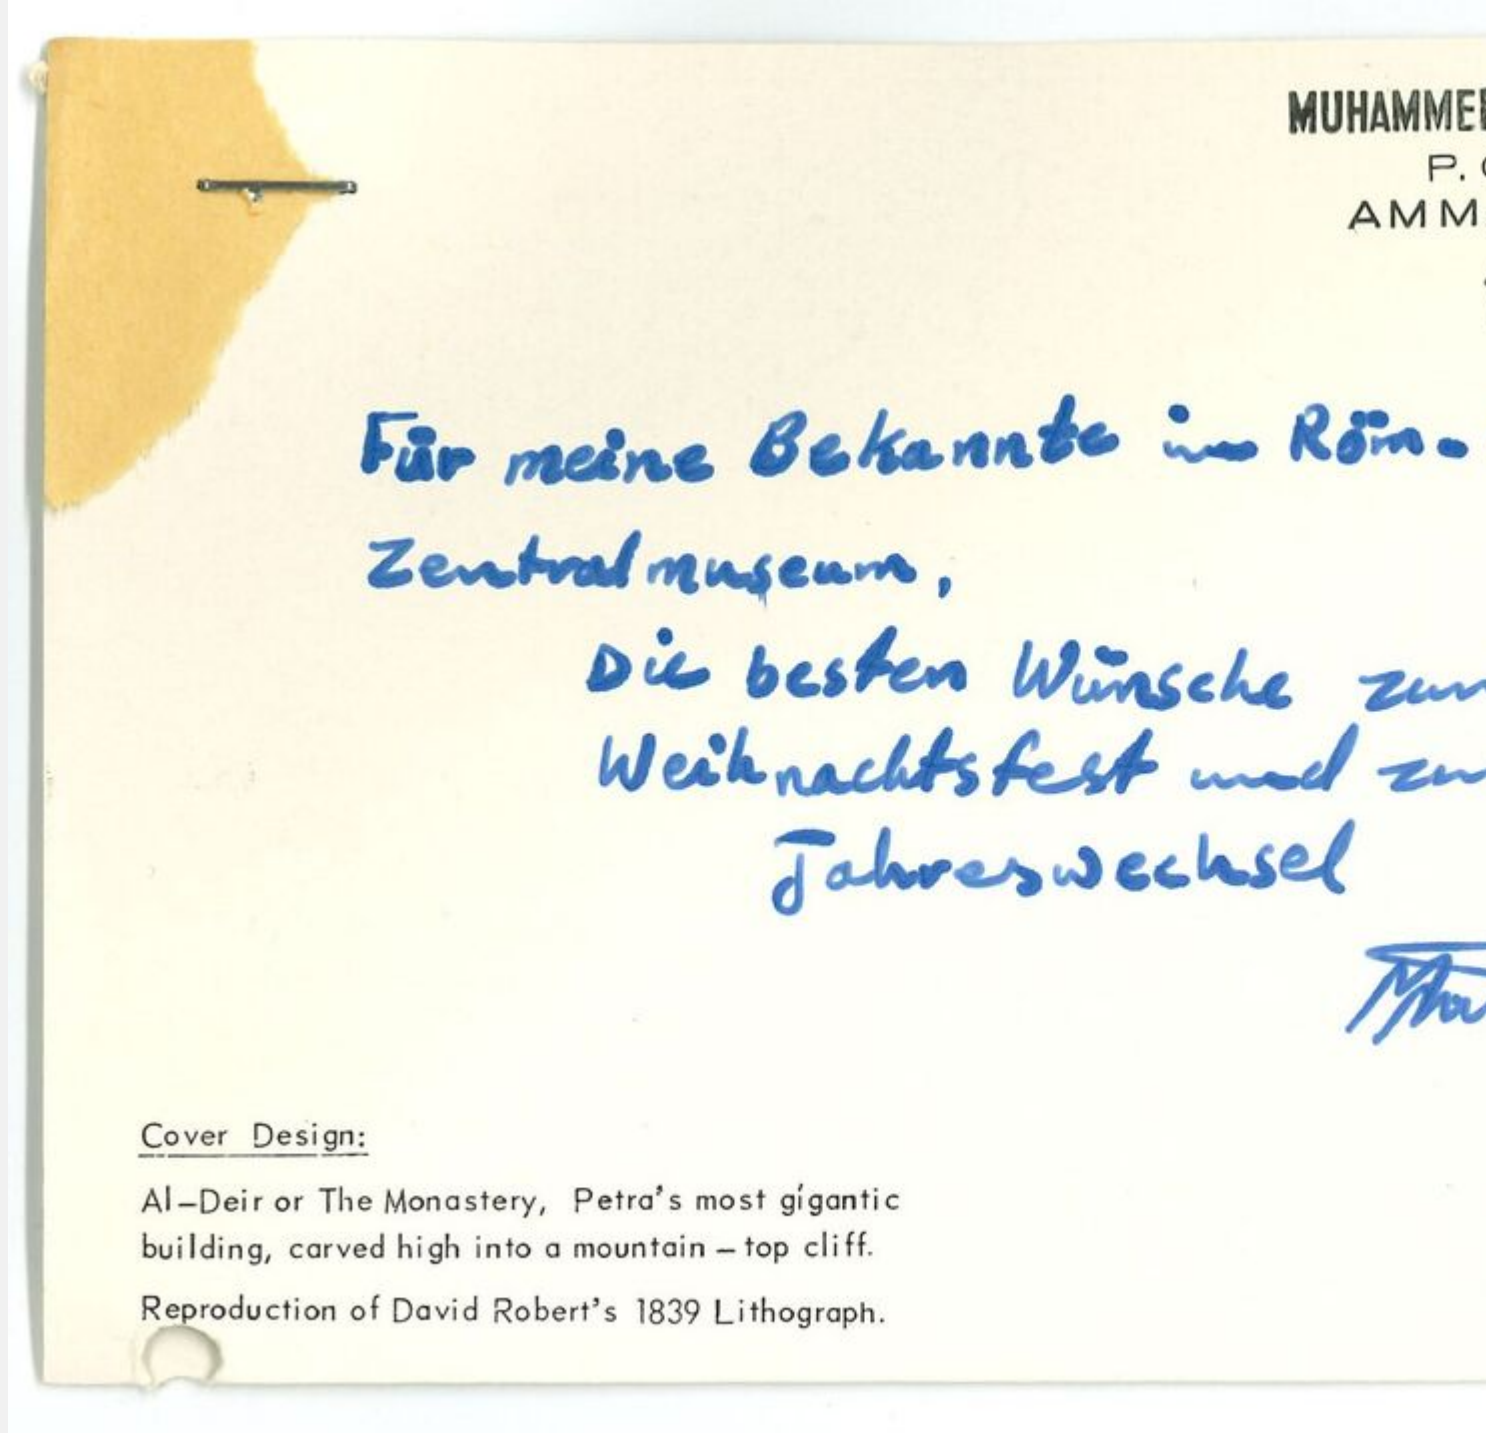 MUHAMMED
P.
AMM
Für meine Bekannte im Röm.
Zentralmuseum,
Die besten Wünsche zum
Weihnachtsfest und zu
Jahreswechsel
Cover Design:
Al–Deir or The Monastery, Petra's most gigantic
building, carved high into a mountain – top cliff.
Reproduction of David Robert's 1839 Lithograph.